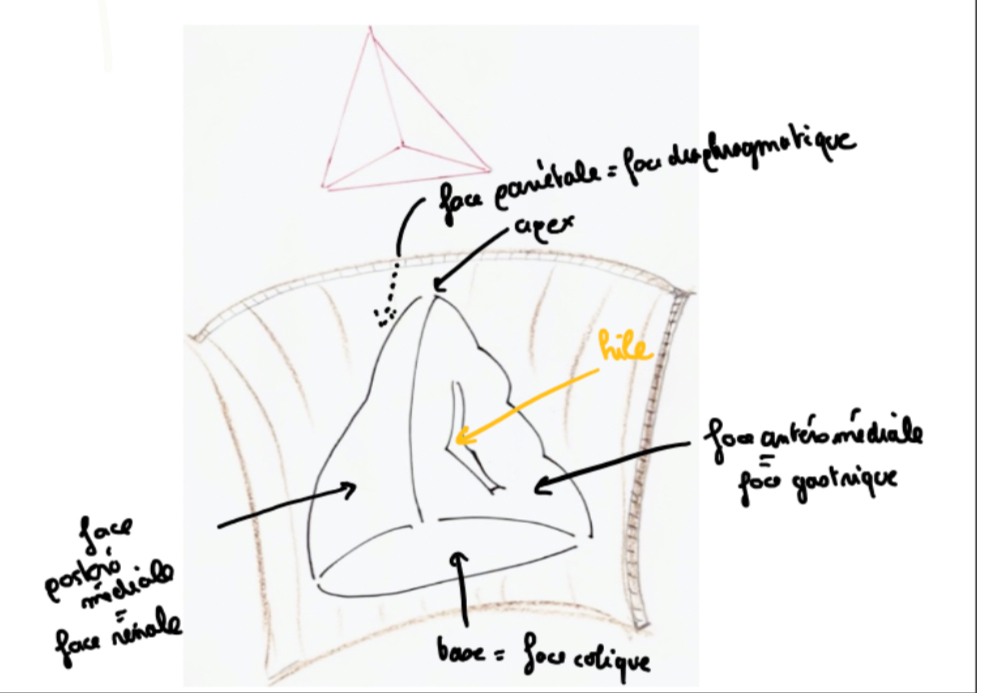 face pariétale = face diaphragmatique
apex
hile
face antéro médiale
=
face gastrique
face
postéro
médiale
=
face rénale
base = face colique